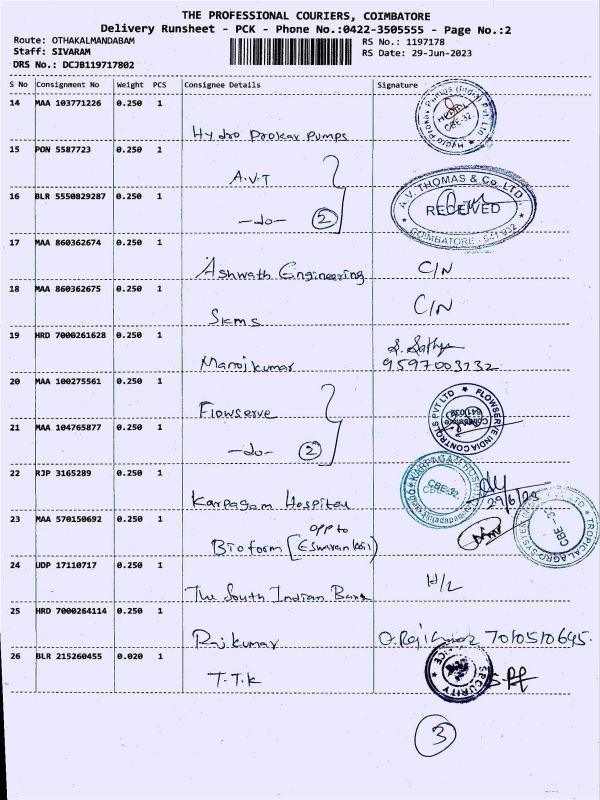 THE PROFESSIONAL COURIERS, COIMBATORE
Delivery Runsheet - PCK - Phone No.:0422-3505555 - Page No.:2
Route: OTHAKALMANDABAM
RS No.: 1197178
Staff: SIVARAM
RS Date: 29-Jun-2023
DRS No.: DCJB119717802
S No Consignment No Weight PCS Consignee Details Signature
14 MAA 103771226 0.250 1
Hydro Prokav Pumps
Hydro Prokav Pumps (India) Pvt. Ltd
CBE-32
15 PON 5587723 0.250 1
A.V.T
16 BLR 5550829287 0.250 1
-do- 2
A.V. THOMAS & Co. LTD.
RECEIVED
COIMBATORE - 641 032
17 MAA 860362674 0.250 1
Ashwath Engineering C/N
18 MAA 860362675 0.250 1
Skms C/N
19 HRD 7000261628 0.250 1
S. Sathya
Manojkumar 9597003132
20 MAA 100275561 0.250 1
Flowserve
21 MAA 104765877 0.250 1
-do- 2
FLOWSERVE INDIA CONTROLS PVT LTD
641032
22 RJP 3165289 0.250 1
Karpagam Hospital
KARPAGAM HOSPITAL
CBE-32
29/6/23
23 MAA 570150692 0.250 1
opp to
Bioform (Eswarankoil)
TROPICAL AGRO SYSTEM
CBE - 32
24 UDP 17110717 0.250 1
The South Indian Bank H/L
25 HRD 7000264114 0.250 1
Rajkumar 7010510645.
26 BLR 215260455 0.020 1
T.T.K
SECURITY
3